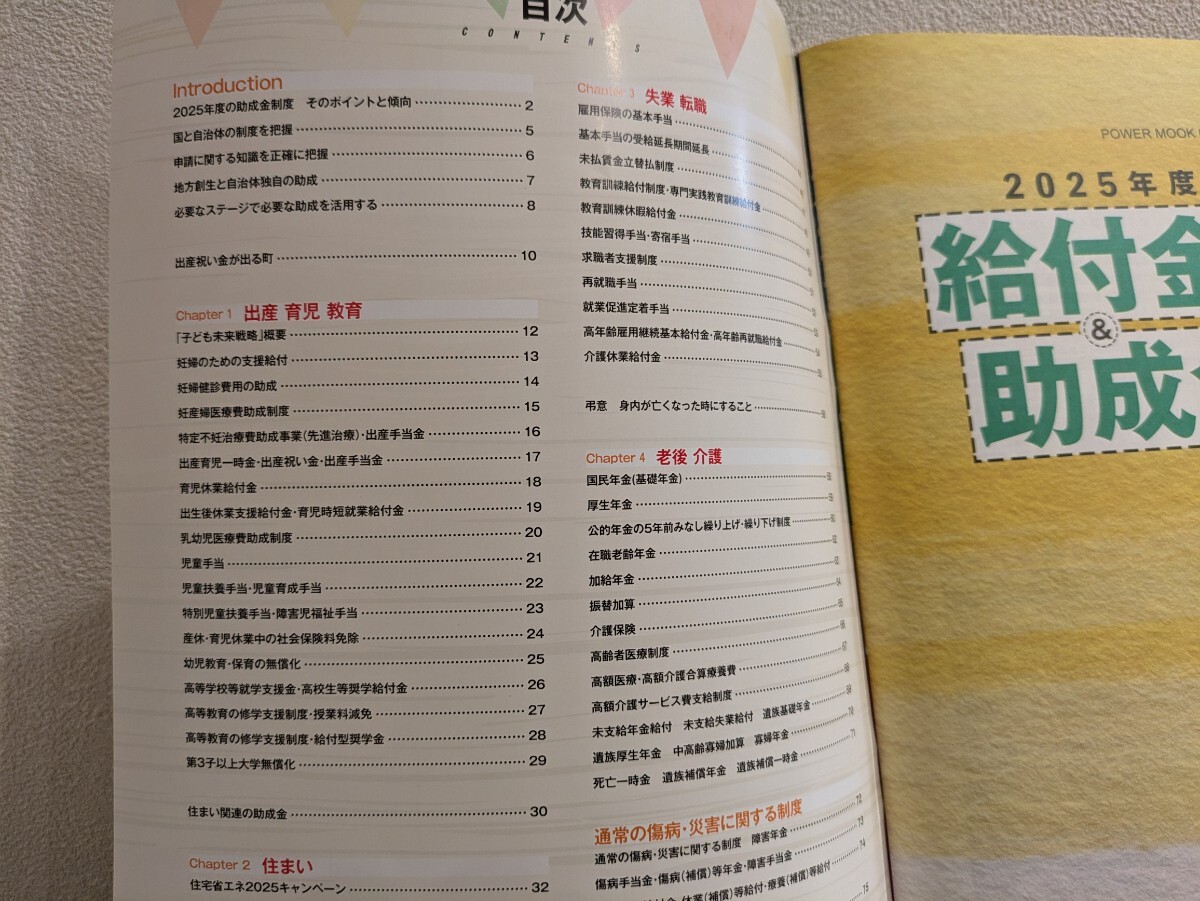 目次
CONTENTS
Introduction
2025年度の助成金制度　そのポイントと傾向 2
国と自治体の制度を把握 5
申請に関する知識を正確に把握 6
地方創生と自治体独自の助成 7
必要なステージで必要な助成を活用する 8
出産祝い金が出る町 10
Chapter 1 出産 育児 教育
「子ども未来戦略」概要 12
妊婦のための支援給付 13
妊婦健診費用の助成 14
妊産婦医療費助成制度 15
特定不妊治療費助成事業(先進治療)・出産手当金 16
出産育児一時金・出産祝い金・出産手当金 17
育児休業給付金 18
出生後休業支援給付金・育児時短就業給付金 19
乳幼児医療費助成制度 20
児童手当 21
児童扶養手当・児童育成手当 22
特別児童扶養手当・障害児福祉手当 23
産休・育児休業中の社会保険料免除 24
幼児教育・保育の無償化 25
高等学校等就学支援金・高校生等奨学給付金 26
高等教育の修学支援制度・授業料減免 27
高等教育の修学支援制度・給付型奨学金 28
第3子以上大学無償化 29
住まい関連の助成金 30
Chapter 2 住まい
住宅省エネ2025キャンペーン 32
Chapter 3 失業 転職
雇用保険の基本手当
基本手当の受給延長期間延長
未払賃金立替払制度
教育訓練給付制度・専門実践教育訓練給付金
教育訓練休暇給付金
技能習得手当・寄宿手当
求職者支援制度
再就職手当
就業促進定着手当
高年齢雇用継続基本給付金・高年齢再就職給付金
介護休業給付金
弔意　身内が亡くなった時にすること
Chapter 4 老後 介護
国民年金(基礎年金)
厚生年金
公的年金の5年前みなし繰り上げ・繰り下げ制度
在職老齢年金
加給年金
振替加算
介護保険
高齢者医療制度
高額医療・高額介護合算療養費
高額介護サービス費支給制度
未支給年金給付　未支給失業給付　遺族基礎年金 69
遺族厚生年金　中高齢寡婦加算　寡婦年金 70
死亡一時金　遺族補償年金　遺族補償一時金 71
通常の傷病・災害に関する制度 72
通常の傷病・災害に関する制度　障害年金 73
傷病手当金・傷病(補償)等年金・障害手当金 74
休業(補償)等給付・療養(補償)等給付 75
POWER MOOK
2025年度
給付金
&
助成